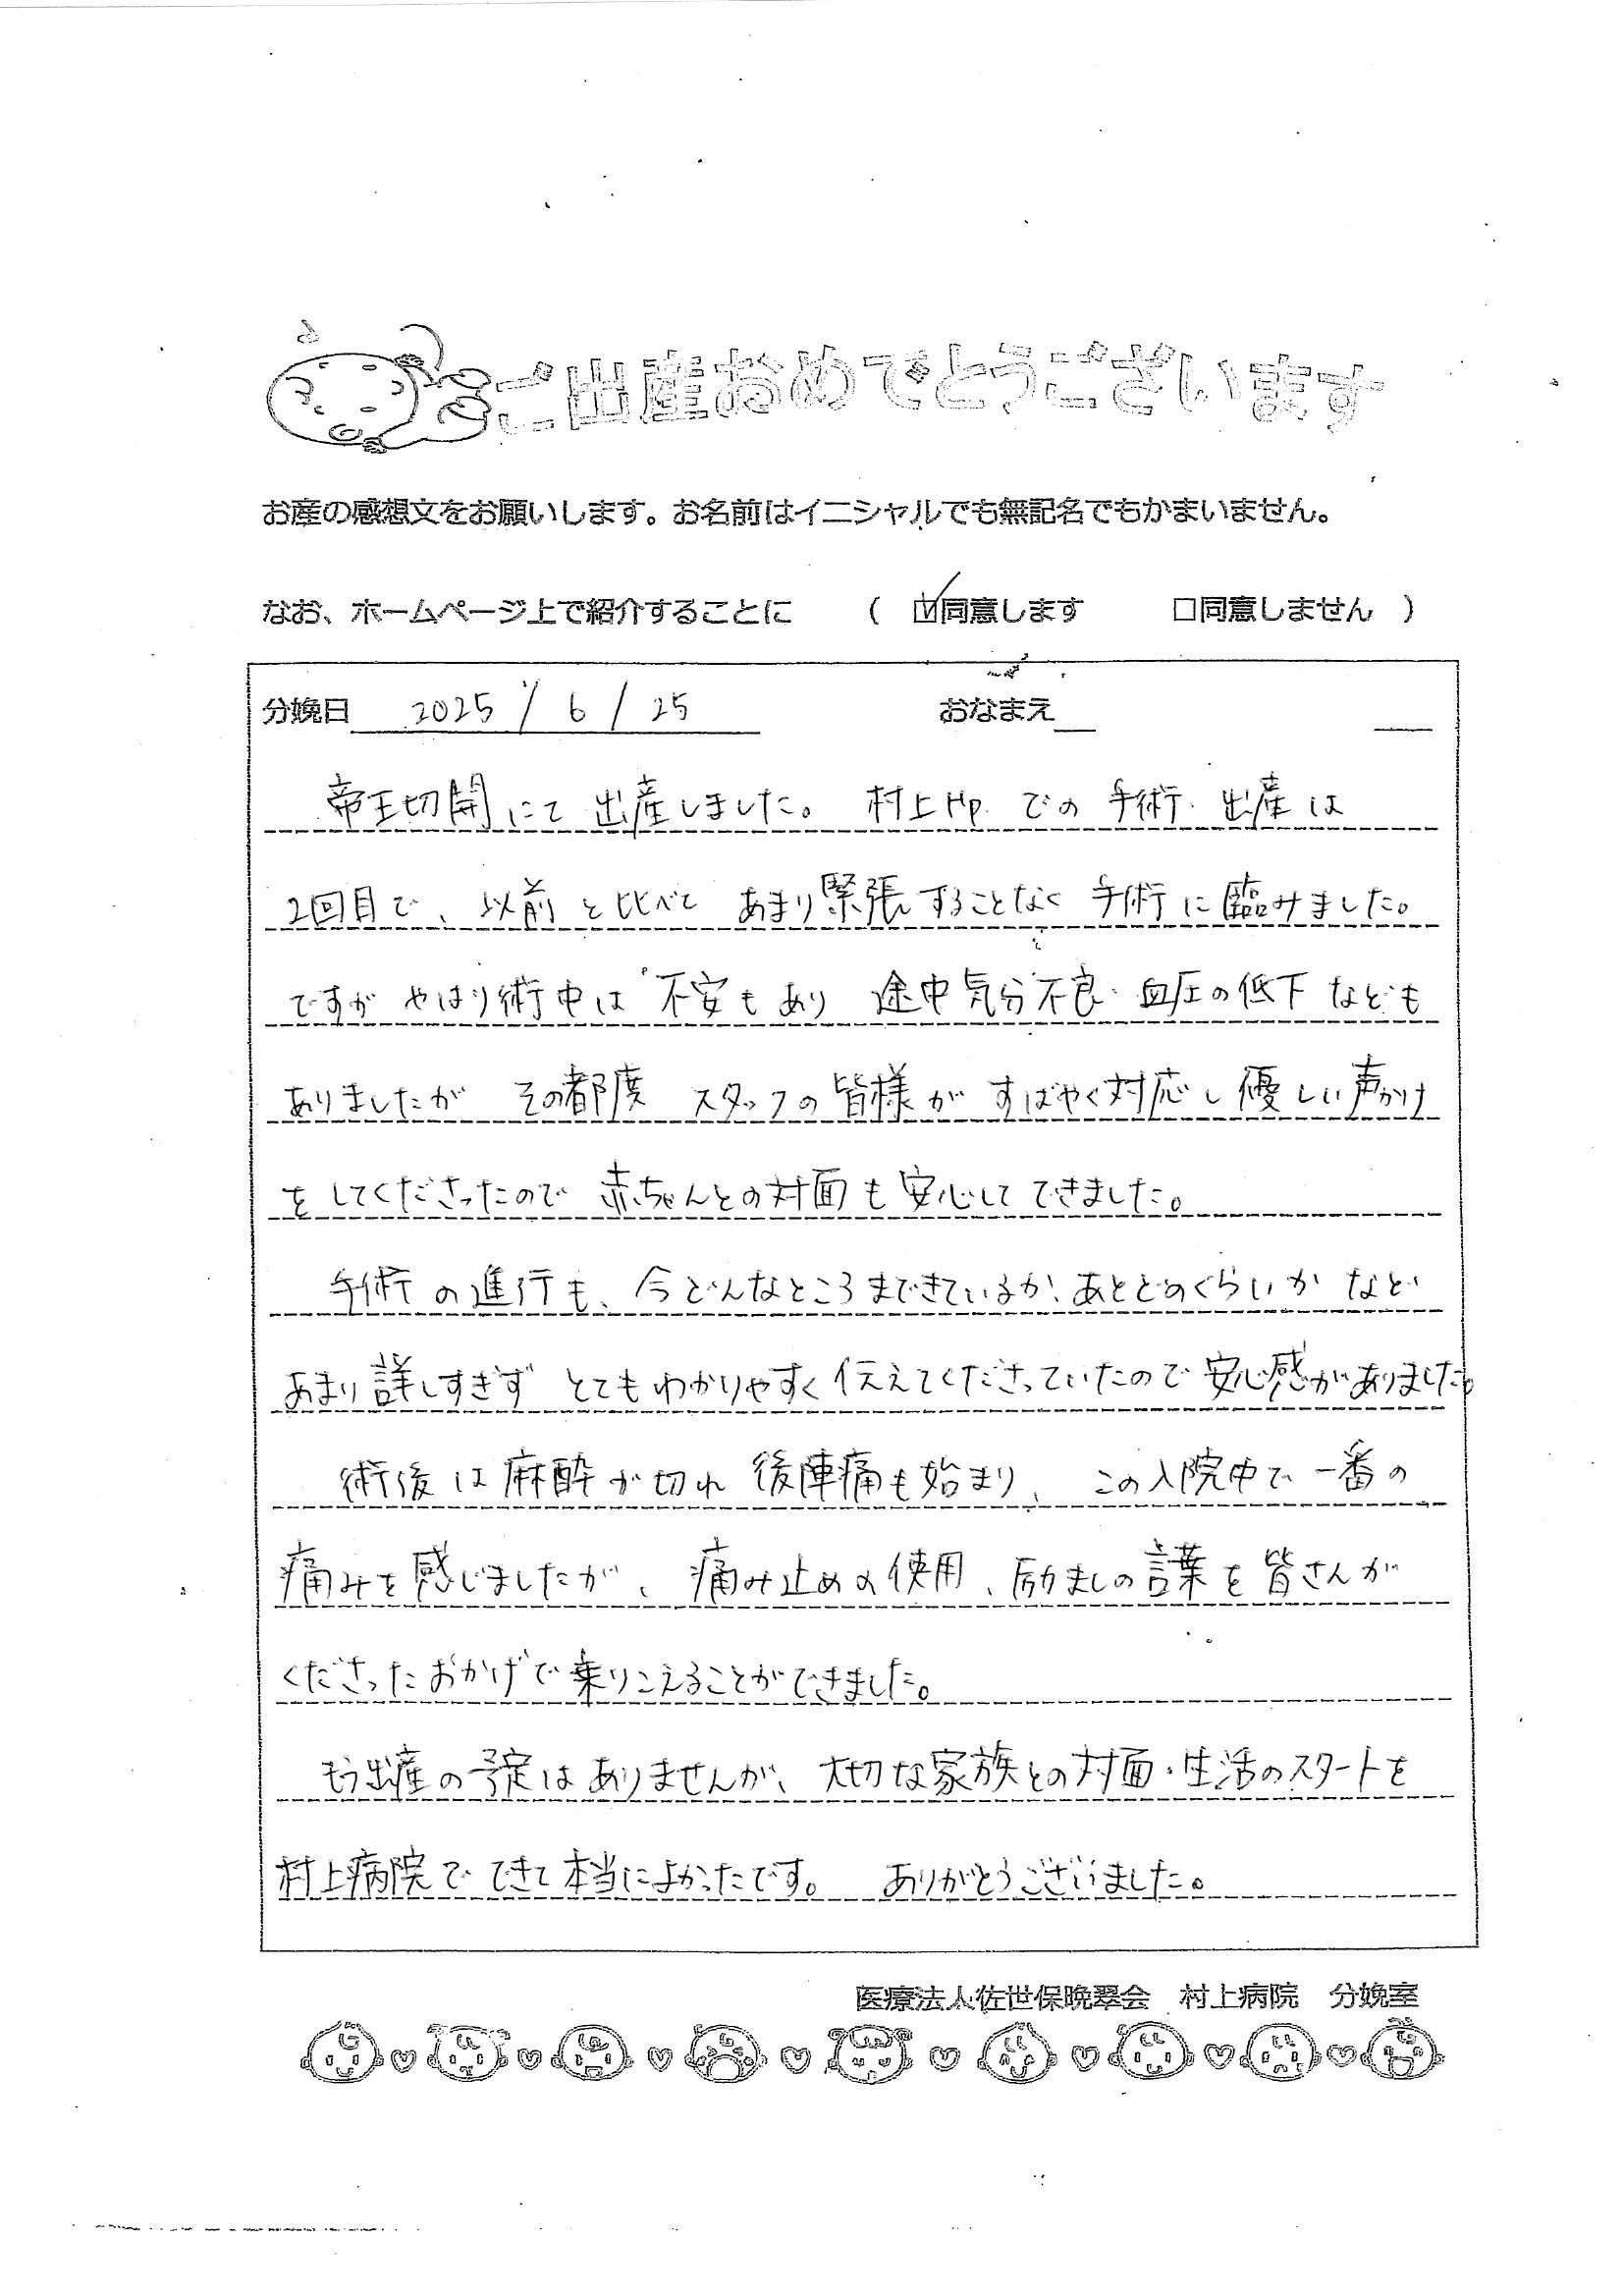 ご出産おめでとうございます
お産の感想文をお願いします。お名前はイニシャルでも無記名でもかまいません。
なお、ホームページ上で紹介することに ( ☑同意します □同意しません )
分娩日 2025 / 6 / 25 おなまえ
帝王切開にて出産しました。 村上Hp. での 手術・出産は
2回目で、以前と比べて あまり緊張することなく 手術に臨みました。
ですが やはり術中は 不安もあり 途中気分不良・血圧の低下 なども
ありましたが その都度 スタッフの皆様が すばやく対応し優しい声かけ
をしてくださったので 赤ちゃんとの対面も安心してできました。
手術の進行も、今どんなところまできているか、あとどのくらいか など
あまり詳しすぎず とてもわかりやすく伝えてくださっていたので安心感がありました。
術後は麻酔が切れ 後陣痛も始まり、 この入院中で一番の
痛みを感じましたが、痛み止めの使用、励ましの言葉を皆さんが
くださったおかげで乗りこえることができました。
もう出産の予定はありませんが、大切な家族との対面・生活のスタートを
村上病院でできて本当によかったです。 ありがとうございました。
医療法人佐世保晩翠会 村上病院 分娩室